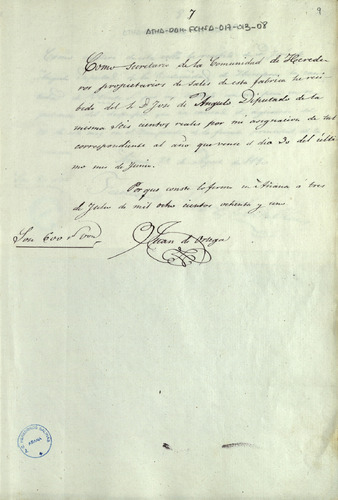 7
9
ATHA-DAH-FCHEA-DA-013-08
Como Secretario de la Comunidad de Herede
ros propietarios de Sales de esta fabrica he reci
bido del S. D. José de Angulo Diputado de la
misma Seis cientos reales por mi asignacion de tal
correspondiente al año que vence el dia 30 del ulti
mo mes de Junio.
Porque conste lo firmo en Añana a tres
de Julio de mil ocho cientos ochenta y uno
Son 600 r
Juan de Ortega
AÑANA